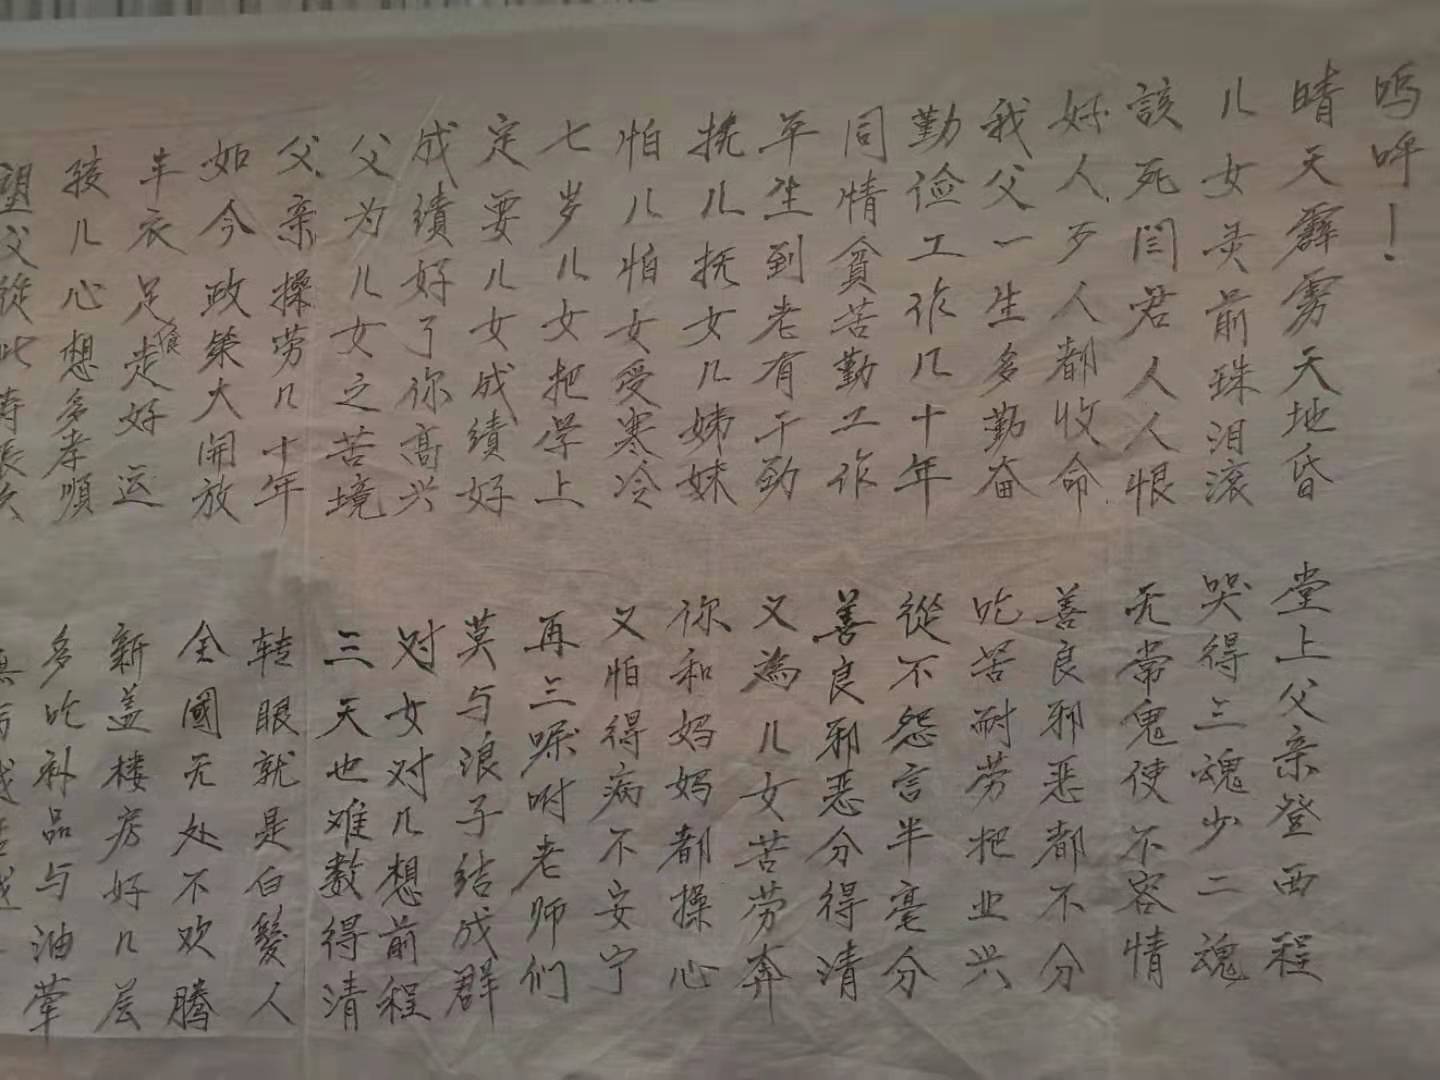 呜呼！
晴天霹雳天地昏 堂上父亲登西程
儿女灵前珠泪滚 哭得三魂少二魂
該死閆君人人恨 无常鬼使不容情
好人歹人都收命 善良邪恶都不分
我父一生多勤奋 吃苦耐劳把业兴
勤俭工作几十年 從不怨言半毫分
同情貧苦勤工作 善良邪恶分得清
年生到老有干劲 又為儿女苦劳奔
抚儿抚女几姊妹 你和妈妈都操心
怕儿怕女受寒冷 又怕得病不安宁
七岁儿女把学上 再三嘱咐老师们
定要儿女成績好 莫与浪子结成群
成績好了你高兴 对女对儿想前程
父为儿女之苦境 三天也难数得清
父亲操劳几十年 转眼就是白髮人
如今政策大開放 全國无处不欢腾
丰衣足食走好运 新盖楼房好几层
孩儿心想多孝順 多吃补品与油荤
望父從此寿長久